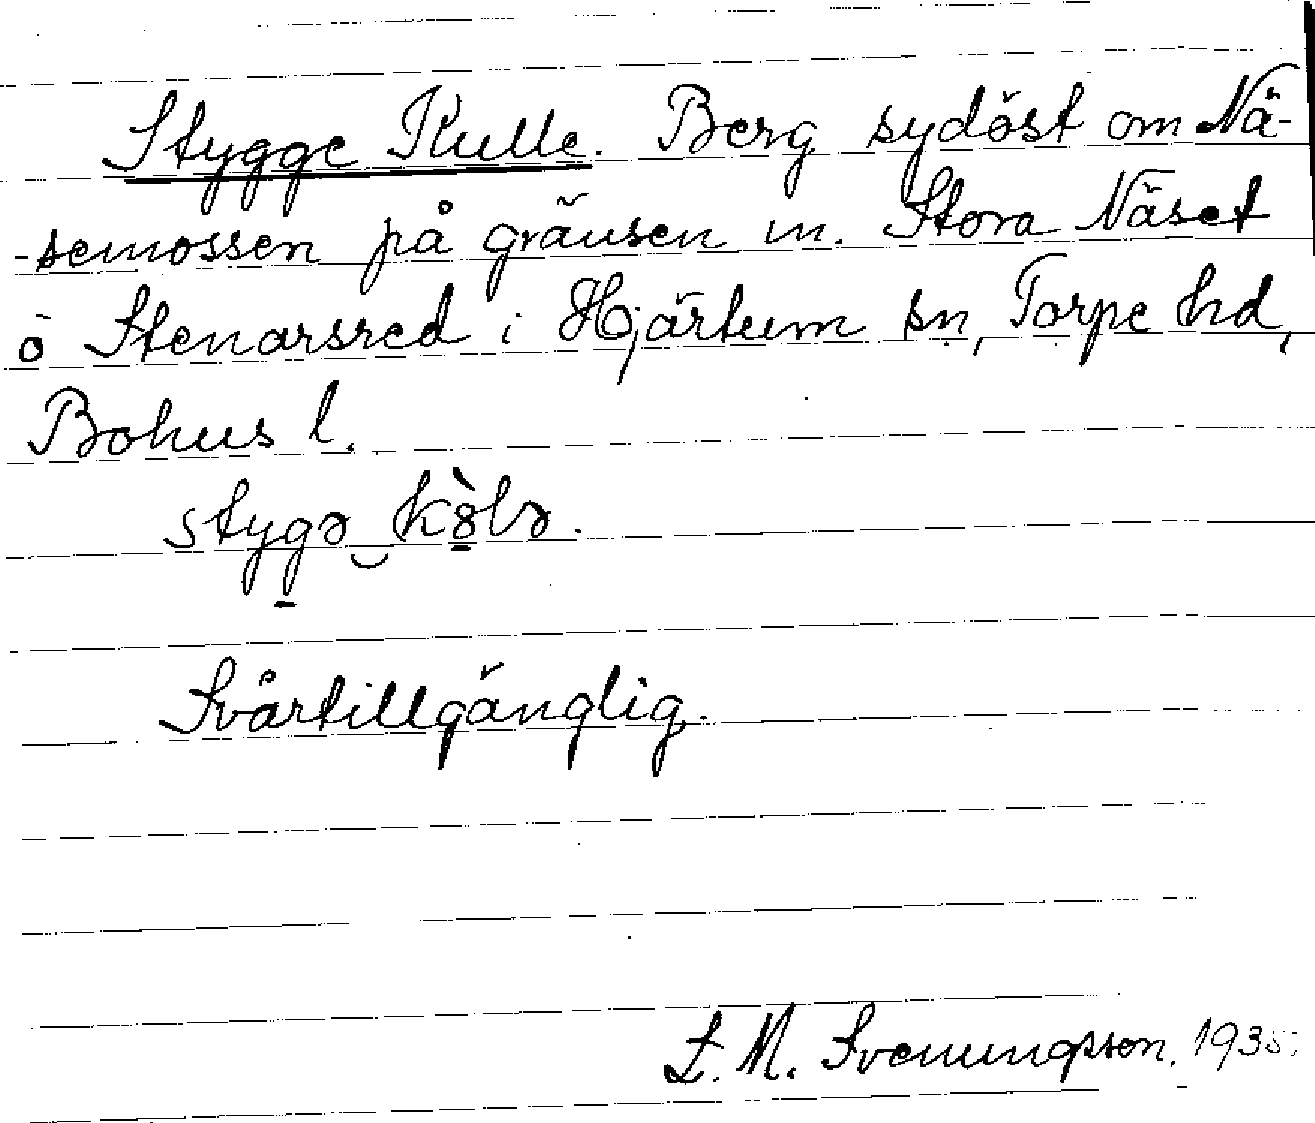 Stygge Kulle. Berg sydöst om Nä-
-semossen på gränsen m. Stora Näset
o Stenarsred i Hjärtum sn, Torpe hd,
Bohus l.
stygə‿kȍlə.
Svårtillgänglig.
L. M. Svenungsson. 1935.